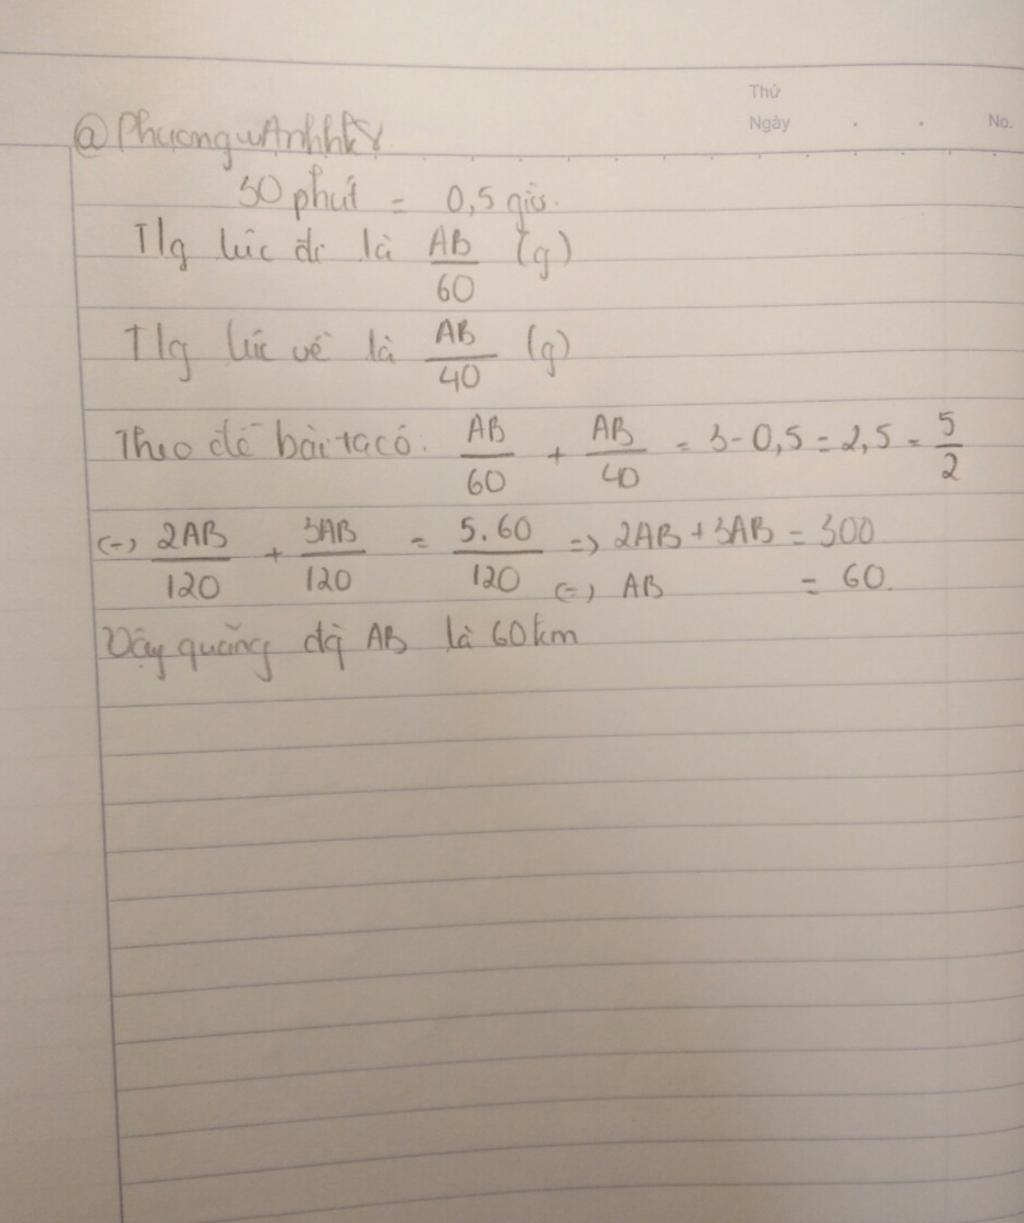 Thứ
Ngày . . No.
@PhuongwAnhhkY
30 phút = 0,5 giờ.
T/g lúc đi là AB/60 (g)
T/g lúc về là AB/40 (g)
Theo đề bài ta có: AB/60 + AB/40 = 3-0,5 = 2,5 = 5/2
(=) 2AB/120 + 3AB/120 = 5.60/120 => 2AB + 3AB = 300
(=) AB = 60.
Vậy quãng đg AB là 60km